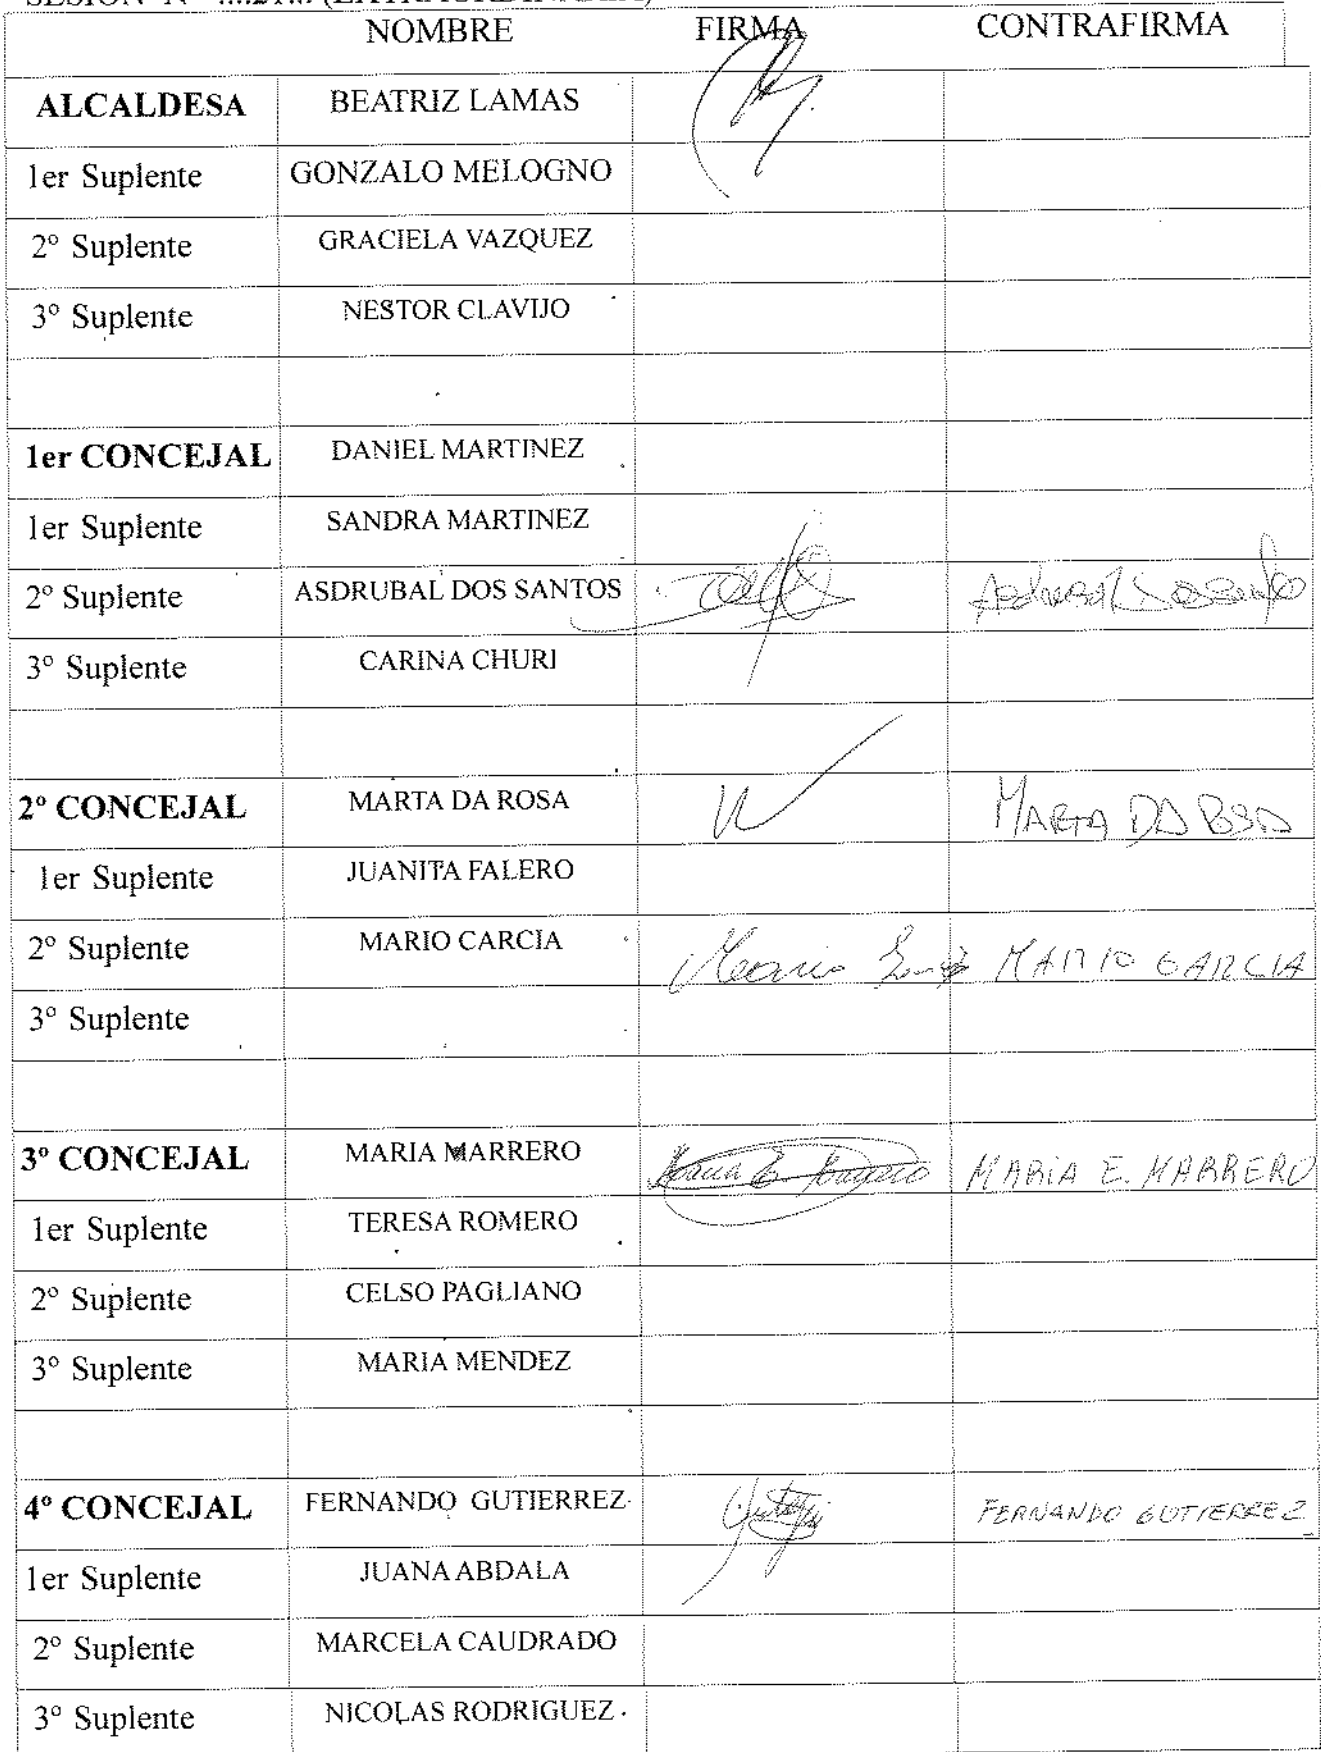 NOMBRE FIRMA CONTRAFIRMA
ALCALDESA BEATRIZ LAMAS
1er Suplente GONZALO MELOGNO
2º Suplente GRACIELA VAZQUEZ
3º Suplente NESTOR CLAVIJO
1er CONCEJAL DANIEL MARTINEZ
1er Suplente SANDRA MARTINEZ
2º Suplente ASDRUBAL DOS SANTOS
3º Suplente CARINA CHURI
2º CONCEJAL MARTA DA ROSA MARTA DA ROSA
1er Suplente JUANITA FALERO
2º Suplente MARIO CARCIA Mario MARIO GARCIA
3º Suplente
3º CONCEJAL MARIA MARRERO Maria E. Marrero MARIA E. MARRERO
1er Suplente TERESA ROMERO
2º Suplente CELSO PAGLIANO
3º Suplente MARIA MENDEZ
4º CONCEJAL FERNANDO GUTIERREZ FERNANDO GUTIERREZ
1er Suplente JUANA ABDALA
2º Suplente MARCELA CAUDRADO
3º Suplente NICOLAS RODRIGUEZ